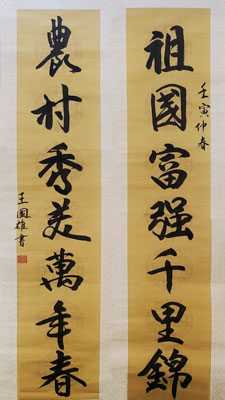 祖國富强千里錦
壬寅仲春
農村秀美萬年春
王國雄書